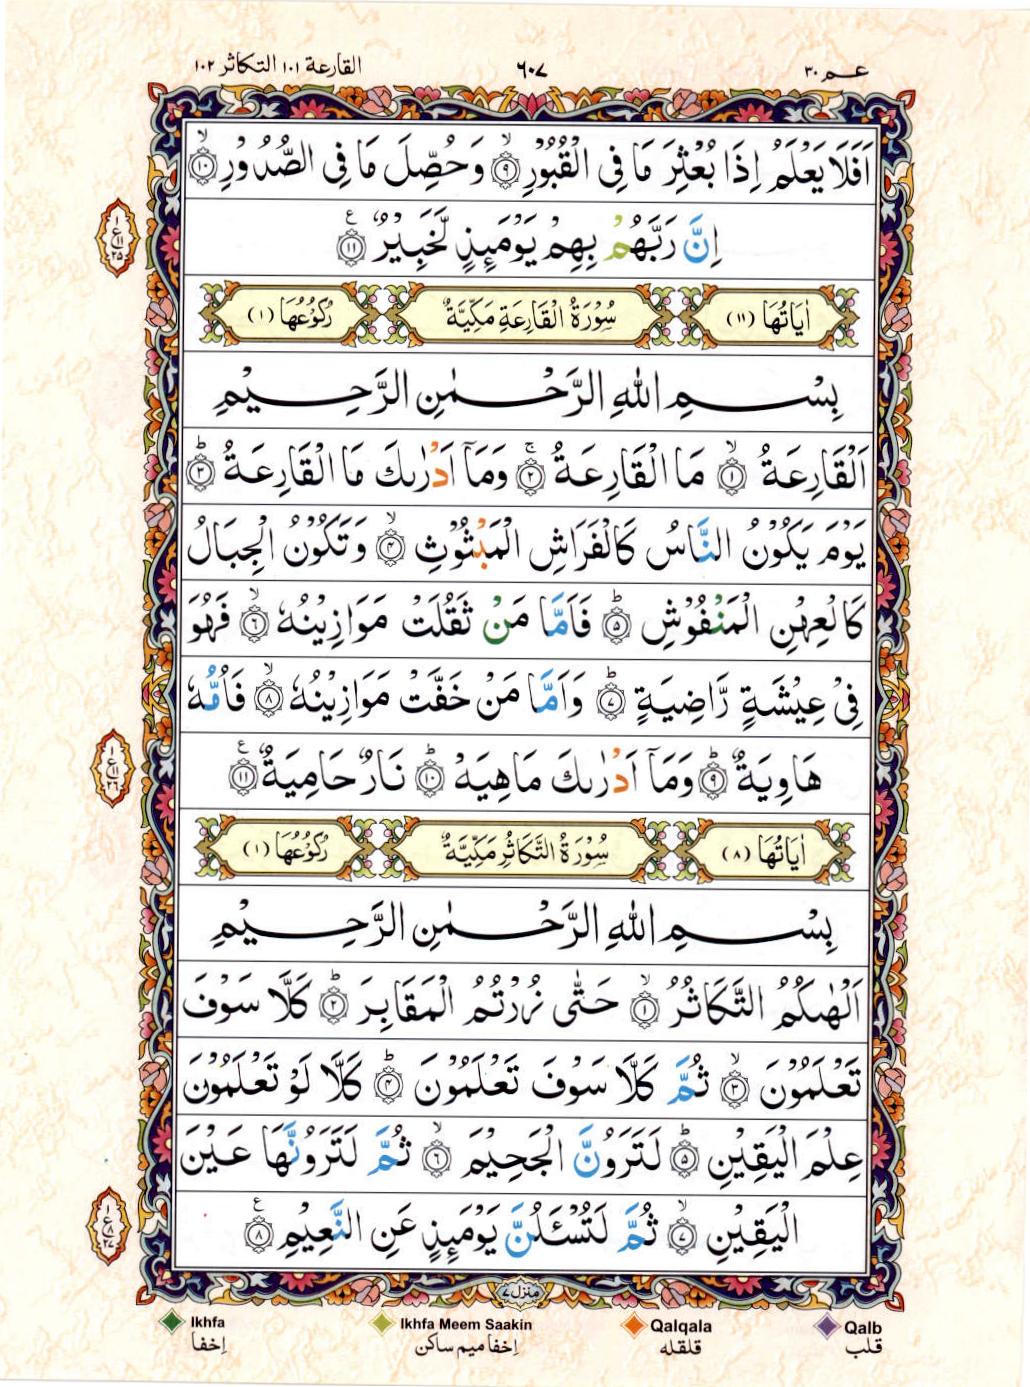 عـم ۳۰
۶۰۷
القارعة ۱۰۱ التكاثر ۱۰۲
اَفَلَا يَعْلَمُ اِذَا بُعْثِرَ مَا فِى الْقُبُوْرِۙ‏ ﴿۹﴾ وَحُصِّلَ مَا فِى الصُّدُوْرِۙ‏ ﴿۱۰﴾
اِنَّ رَبَّهُمْ بِهِمْ يَوْمَٮِٕذٍ لَّخَبِيْرٌ ﴿۱۱﴾ ع
ع ۱ ۱۱ ۲۵
اٰيَاتُهَا (۱۱)
سُوْرَةُ الْقَارِعَةِ مَكِّيَّةٌ
رُكُوْعُهَا (۱)
بِسْمِ اللهِ الرَّحْمٰنِ الرَّحِيْمِ
اَلْقَارِعَةُۙ‏ ﴿۱﴾ مَا الْقَارِعَةُ‌ۚ‏ ﴿۲﴾ وَمَاۤ اَدْرٰىكَ مَا الْقَارِعَةُؕ‏ ﴿۳﴾
يَوْمَ يَكُوْنُ النَّاسُ كَالْفَرَاشِ الْمَبْثُوْثِۙ‏ ﴿۴﴾ وَتَكُوْنُ الْجِبَالُ
كَالْعِهْنِ الْمَنْفُوْشِؕ‏ ﴿۵﴾ فَاَمَّا مَنْ ثَقُلَتْ مَوَازِيْنُهٗۙ‏ ﴿۶﴾ فَهُوَ
فِىْ عِيْشَةٍ رَّاضِيَةٍؕ‏ ﴿۷﴾ وَاَمَّا مَنْ خَفَّتْ مَوَازِيْنُهٗۙ‏ ﴿۸﴾ فَاُمُّهٗ
هَاوِيَةٌؕ‏ ﴿۹﴾ وَمَاۤ اَدْرٰىكَ مَاهِيَهْؕ‏ ﴿۱۰﴾ نَارٌ حَامِيَةٌ ﴿۱۱﴾ ع
ع ۱ ۱۱ ۲۶
اٰيَاتُهَا (۸)
سُوْرَةُ التَّكَاثُرِ مَكِّيَّةٌ
رُكُوْعُهَا (۱)
بِسْمِ اللهِ الرَّحْمٰنِ الرَّحِيْمِ
اَلْهٰٮكُمُ التَّكَاثُرُۙ‏ ﴿۱﴾ حَتّٰى زُرْتُمُ الْمَقَابِرَؕ‏ ﴿۲﴾ كَلَّا سَوْفَ
تَعْلَمُوْنَۙ‏ ﴿۳﴾ ثُمَّ كَلَّا سَوْفَ تَعْلَمُوْنَؕ‏ ﴿۴﴾ كَلَّا لَوْ تَعْلَمُوْنَ
عِلْمَ الْيَقِيْنِؕ‏ ﴿۵﴾ لَتَرَوُنَّ الْجَحِيْمَۙ‏ ﴿۶﴾ ثُمَّ لَتَرَوُنَّهَا عَيْنَ
الْيَقِيْنِۙ‏ ﴿۷﴾ ثُمَّ لَتُسْـَٔـلُنَّ يَوْمَٮِٕذٍ عَنِ النَّعِيْمِ ﴿۸﴾ ع
ع ۱ ۸ ۲۷
منزل ۷
Ikhfa
إخفا
Ikhfa Meem Saakin
إخفا ميم ساكن
Qalqala
قلقله
Qalb
قلب